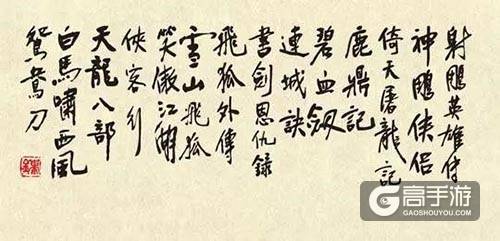 射鵰英雄傳
神鵰俠侶
倚天屠龍記
鹿鼎記
碧血劍
連城訣
書劍恩仇錄
飛狐外傳
雪山飛狐
笑傲江湖
俠客行
天龍八部
白馬嘯西風
鴛鴦刀
高手游
GAOSHOUYOU.COM